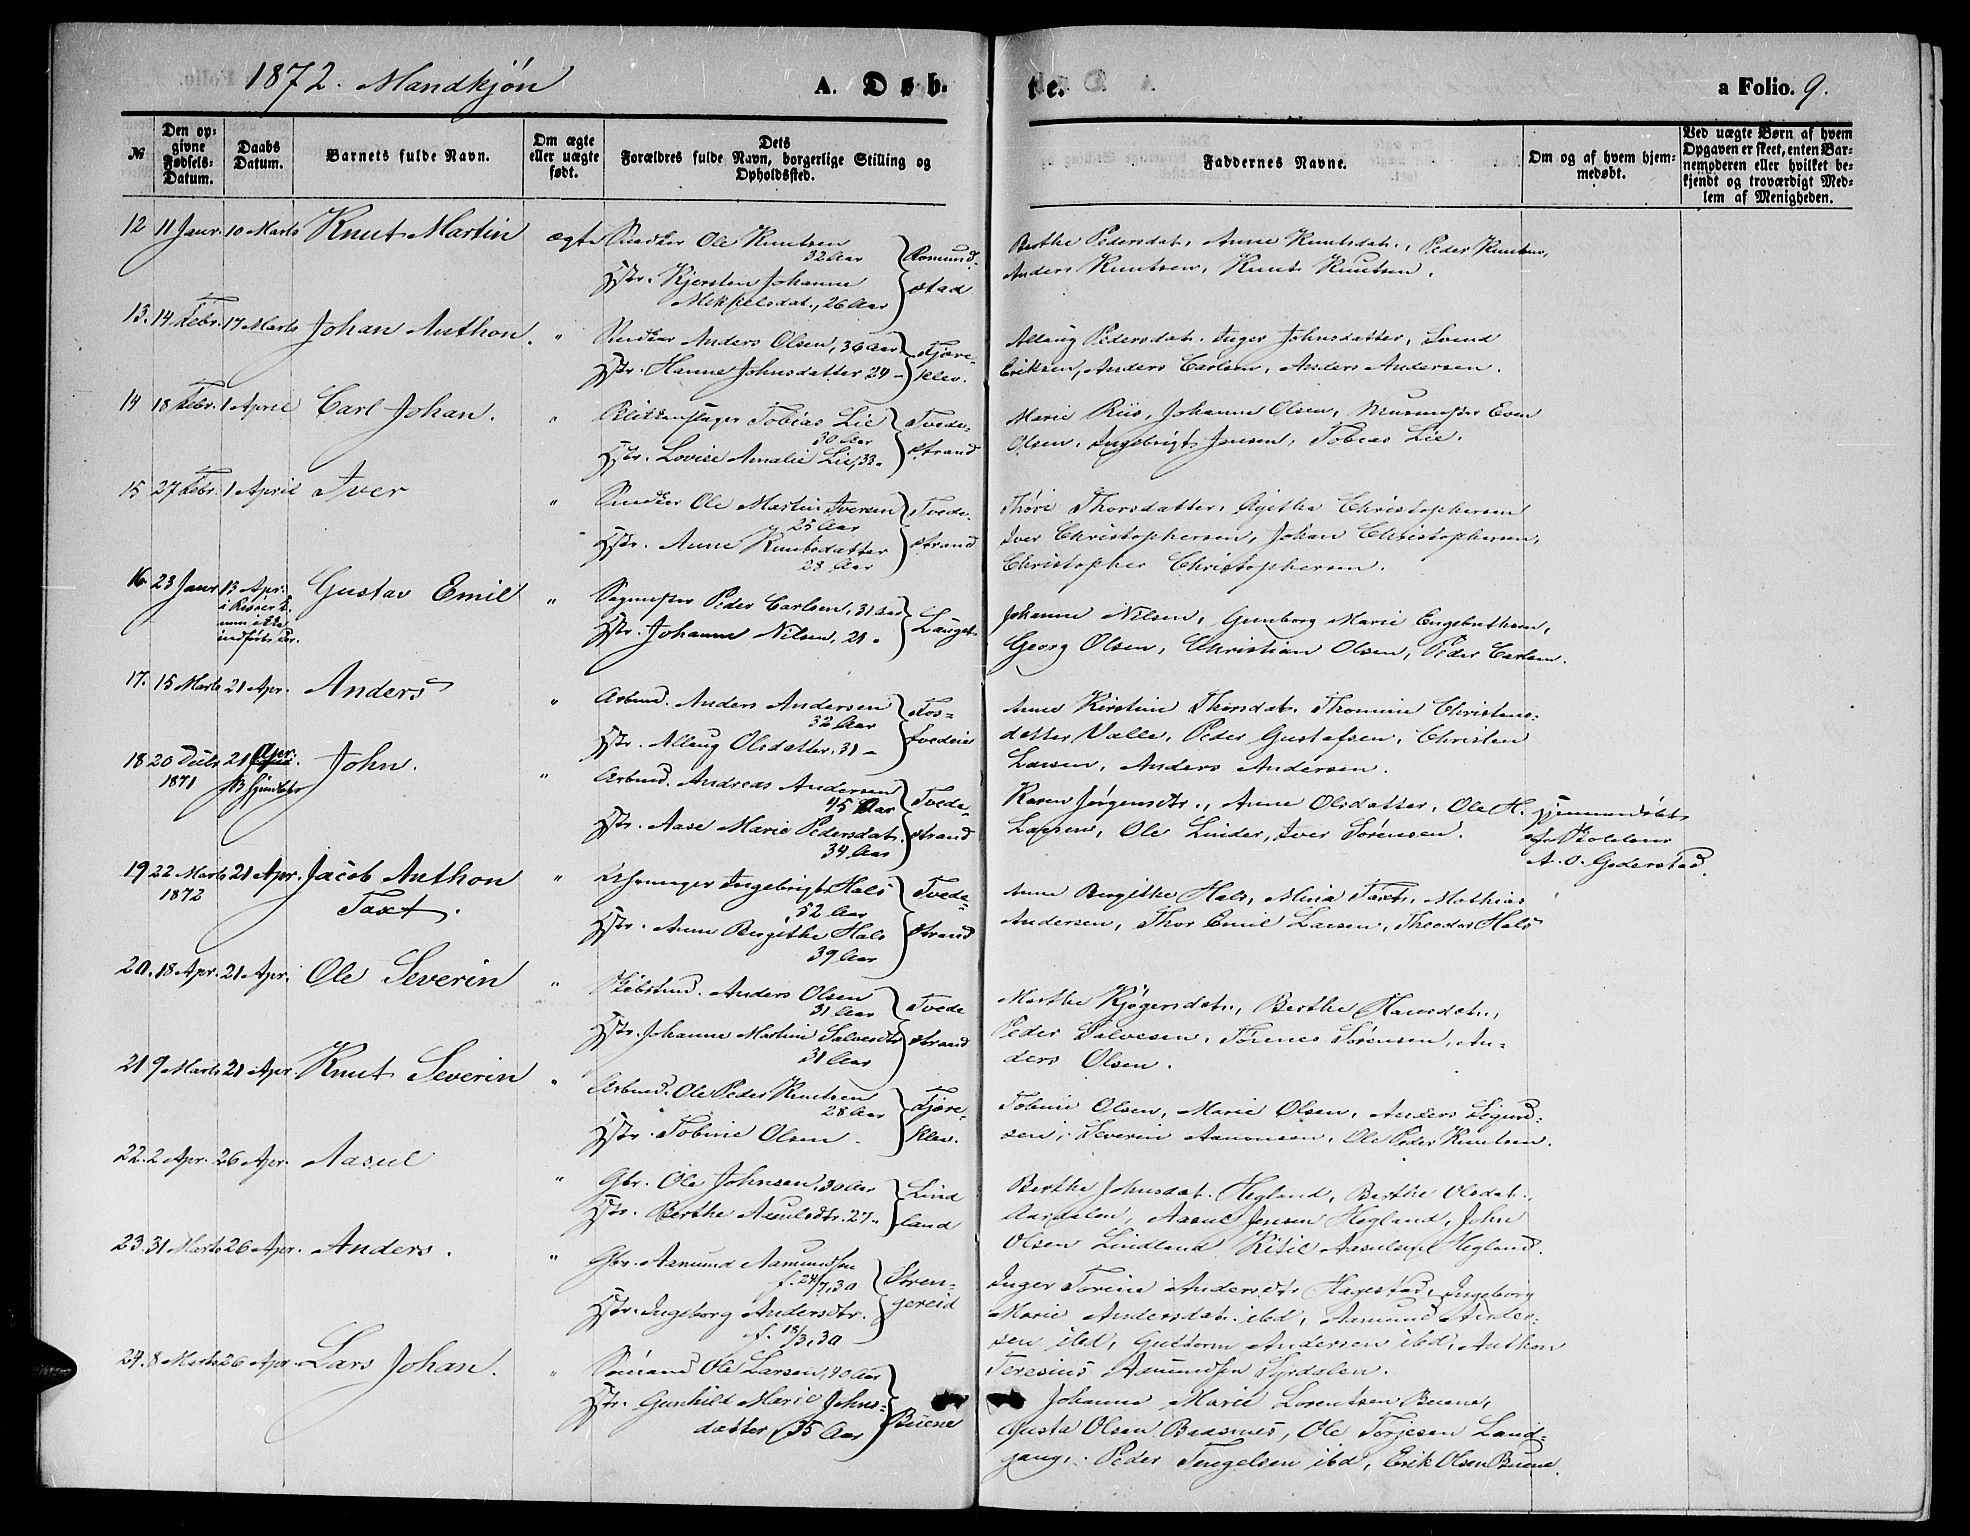 1872. Mandkjøn
A. Døb-
te.
a Folio. 9.
№
Den op-
givne
Fødsels-
Datum.
Daabs
Datum.
Barnets fulde Navn.
Om ægte
eller uægte
født.
Dets
Forældres fulde Navn, borgerlige Stilling og
Opholdssted.
Faddernes Navne.
Om og af hvem hjem-
medøbt.
Ved uægte Børn af hvem
Opgaven er skeet, enten Bar-
nemoderen eller hvilket be-
kjendt og troværdigt Med-
lem af Menigheden.
12 11 Janr. 10 Marts Knut Martin ægte Ole Knutsen
32 Aar
Hstr. Kjersten Johanne
Mikkelsdat., 26 Aar
Romund-
stad
Berthe Pedersdat., Anne Knutsdat., Peder Knutsen,
Anders Knutsen, Knut Knutsen.
13. 14 Febr. 17 Marts Johan Anthon. " Anders Olsen, 36 Aar
Hstr. Hanne Johnsdatter 24 "
Fjære-
klev.
Allaug Pedersdat. Inger Johnsdatter, Svend
Eriksen, Anders Carlsen, Anders Andersen.
14 18 Febr. 1 April Carl Johan. " Blikkenslager Tobias Lie
30 Aar
Hstr. Lovise Amalie Lie, 33 "
Tvede-
strand
Marie Riis, Johanne Olsen, Murmester Even
Olsen, Ingebrigt Jensen, Tobias Lie.
15 27 Febr. 1 April Iver " Ole Martin Iversen
25 Aar
Hstr. Anne Knutsdatter
28 Aar
Tvede-
strand
Thøre Thorsdatter, Agithe Christophersen
Iver Christophersen, Johan Christophersen,
Christopher Christophersen.
16. 23 Janr 13 Apr.
i Risøer
indført der.
Gustav Emil " Sagmester Peder Carlsen, 31 Aar
Hstr. Johanne Nilsen, 21 "
Lauget
Johanne Nilsen, Gunborg Marie Engebrethsen,
Georg Olsen, Christian Olsen, Peder Carlsen.
17. 15 Marts 21 Apr. Anders " Arbmd. Anders Andersen
32 Aar
Hstr. Allaug Olsdatter. 31 "
Fos-
tvedeie
Anne Kirstine Thorsdat. Thomine Christens-
datter Valle, Peder Gustafsen, Christen
Larsen, Anders Andersen.
18 20 Decbr. 21 Apr.
1871
John. " Arbmd. Andreas Andersen
45 Aar
Hstr. Aase Marie Pedersdat.
34 Aar
Tvede-
strand
Karen Jørgensdtr., Anne Olsdatter, Ole H.
Larsen, Ole Linder, Iver Sørensen.
Hjemmedøbt
af
A. O. Goderstad.
19 22 Marts 21 Apr.
1872
Jacob Anthon
Taxt. " Ingebrigt Hals
52 Aar
Hstr. Anne Bergithe Hals
39 Aar
Tvede-
strand
Anne Bergithe Hals, Mina Taxt, Mathias
Andersen, Thor Emil Larsen, Theodor Hals
20. 18 Apr. 21 Apr. Ole Severin " Anders Olsen
31 Aar
Hstr. Johanne Martine Salvesdtr
31 Aar
Tvede
strand
Marthe Kjøgersdat., Berthe Hansdat.,
Peder Salvesen, Tønnes Sørensen, An-
ders Olsen.
21 9 Marts 21 Apr. Knut Severin " Arbmd. Ole Peder Knutsen
28 Aar
Hstr. Tobine Olsen "
Fjære-
klev.
Tobine Olsen, Marie Olsen, Anders Sigurd-
sen, Severin Aanonsen, Ole Peder Knutsen.
22. 2 Apr. 26 Apr. Aasul " Gbr. Ole Johnsen, 30 Aar
Hstr. Berthe Aasulsdtr. 27 "
Lind
land
Berthe Johnsdat. Hegland, Berthe Olsdat.
Aardalen, Aasul Jensen Hegland, John
Olsen Lindland, Kitil Aasulsen Hegland.
23. 31 Marts 26 Apr. Anders. " Gbr. Aamund Aamundsen
f. 24/7, 30
Hstr. Ingeborg Andersdtr.
f. 18/3, 30
Støren-
gereid
Inger Torine Andersdtr Hagestad, Ingeborg
Marie Andersdat. ibd, Aamund Ander-
sen ibd, Guttorm Andersen ibd, Anthon
Teresius Aamundsen Syrdalen.
24. 8 Marts 26 Apr. Lars Johan. " Sømand Ole Larsen, 40 Aar
Hstr. Gunhild Marie Johns-
datter (35 Aar
Buene
Johanne Marie Lorentsen Buene,
Gusta Olsen Baasnes, Ole Torjesen Land-
gang, Peder Tengelsen ibd, Erik Olsen Buene.